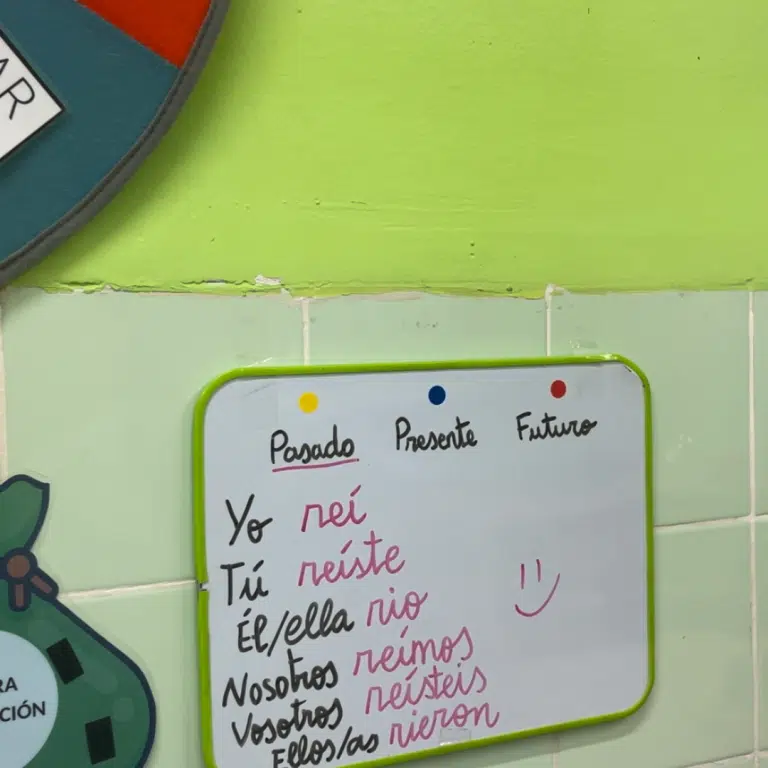 AR
Pasado Presente Futuro
Yo reí
Tú reíste
Él/ella rio
Nosotros reímos
Vosotros reísteis
Ellos/as rieron
RA
CIÓN